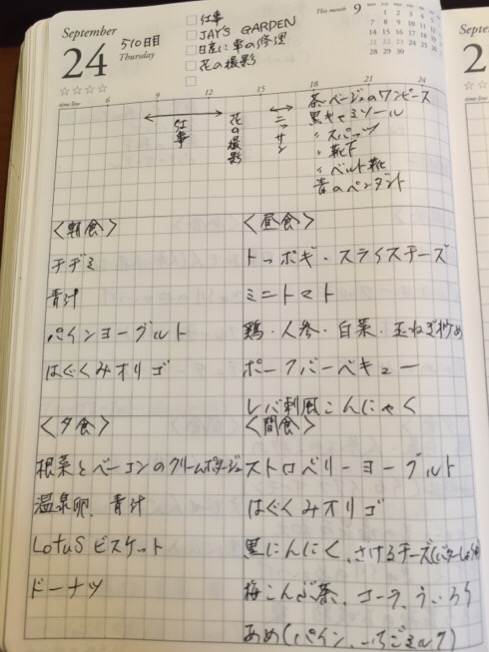 September
24
510日目
Thursday
仕事
JAY'S GARDEN
日産に車の修理
花の撮影
This month 9
1 2 3 4 5 6
7 8 9 10 11 12 13
14 15 16 17 18 19 20
21 22 23 24 25 26 27
28 29 30
time line 6 9 12 15 18 21 24
仕事
花の撮影
ニッサン
茶ベージュのワンピース
黒キャミソール
〃スパッツ
〃靴下
〃ベルト靴
青のペンダント
<朝食>
チヂミ
青汁
パインヨーグルト
はぐくみオリゴ
<昼食>
トッポギ・スライスチーズ
ミニトマト
鶏・人参・白菜・玉ねぎ炒め
ポークバーベキュー
レバ刺風こんにゃく
<夕食>
根菜とベーコンのクリームポタージュ
温泉卵、青汁
LOTUS ビスケット
ドーナツ
<間食>
ストロベリーヨーグルト
はぐくみオリゴ
黒にんにく、さけるチーズ(バターしょうゆ)
梅こんぶ茶、コーラ、ういろう
あめ(パイン、いちごミルク)